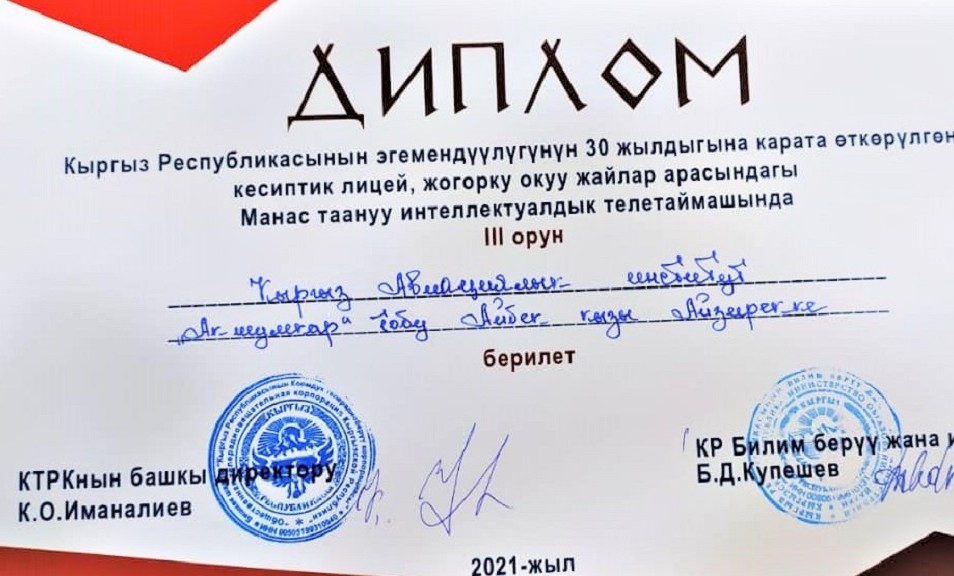 ДИПЛОМ
Кыргыз Республикасынын эгемендүүлүгүнүн 30 жылдыгына карата өткөрүлгөн
кесиптик лицей, жогорку окуу жайлар арасындагы
Манас таануу интеллектуалдык телетаймашында
III орун
Кыргыз Авиациялык институт
"Ак шумкар" тобу Айбек кызы Айзирек ке
берилет
КТРКнын башкы директору
К.О.Иманалиев
КР Билим берүү жана и
Б.Д.Купешев
2021-жыл